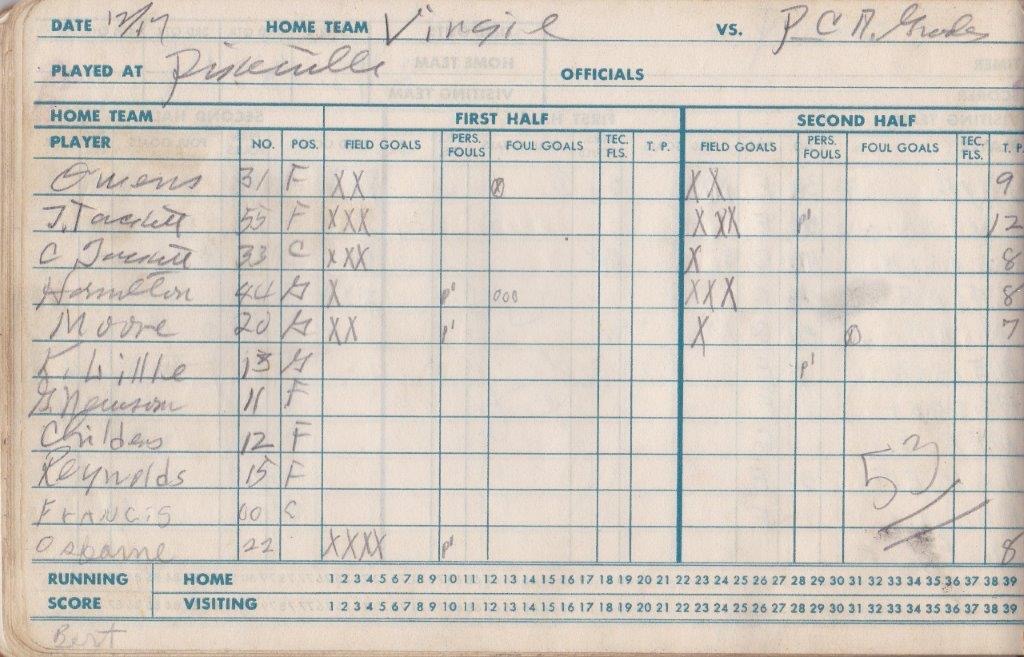 DATE 12/17 HOME TEAM Virgie VS. P C A. Grades
PLAYED AT Pikeville OFFICIALS
HOME TEAM FIRST HALF SECOND HALF
PLAYER NO. POS. FIELD GOALS PERS. FOULS FOUL GOALS TEC. FLS. T. P. FIELD GOALS PERS. FOULS FOUL GOALS TEC. FLS. T. P.
Owens 31 F XX XX 9
J. Tackett 55 F XXX X XX P' 12
C Tackett 33 C XXX X 8
Hamilton 44 G X P' 000 XXX 8
Moore 20 G XX P' X 7
K. Little 13 G P'
G Newsom 11 F
Childers 12 F
Reynolds 15 F 53
FRANCIS 00 C
Osborne 22 XXXX P' 8
RUNNING HOME 1 2 3 4 5 6 7 8 9 10 11 12 13 14 15 16 17 18 19 20 21 22 23 24 25 26 27 28 29 30 31 32 33 34 35 36 37 38 39
SCORE VISITING 1 2 3 4 5 6 7 8 9 10 11 12 13 14 15 16 17 18 19 20 21 22 23 24 25 26 27 28 29 30 31 32 33 34 35 36 37 38 39
Bert